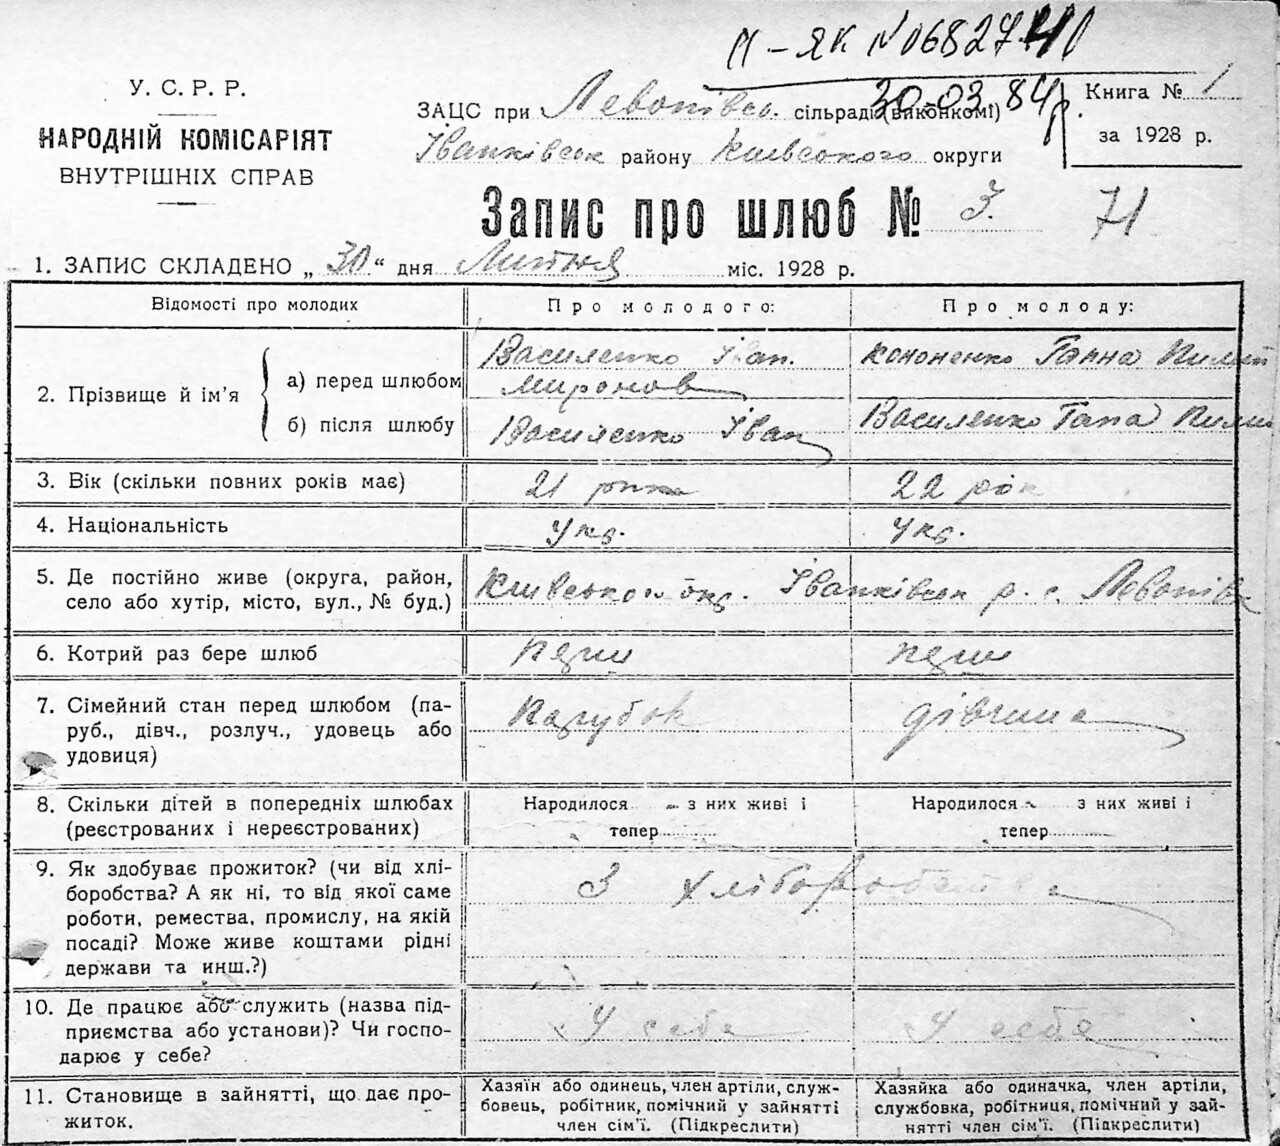 ІІ – ЯК №068274
30.03.84р.
У. С. Р. Р.
НАРОДНІЙ КОМІСАРІЯТ
ВНУТРІШНІХ СПРАВ
ЗАЦС при Левопівсь. сільраді (виконкомі)
Іванківськ району Київського округи
Книга № 1
за 1928 р.
Запис про шлюб № 3.
71
1. ЗАПИС СКЛАДЕНО „30“ дня Липня міс. 1928 р.
Відомості про молодих
Про молодого:
Про молоду:
2. Прізвище й ім'я
а) перед шлюбом
Василенко Іван.
Миронов
Кононенко Ганна Пилип
б) після шлюбу
Василенко Іван
Василенко Гана
3. Вік (скільки повних років має)
21 рік
22 рік
4. Національність
Укр.
Укр.
5. Де постійно живе (округа, район,
село або хутір, місто, вул., № буд.)
Київської окр. Іванківськ р. с. Левопівк
6. Котрий раз бере шлюб
перш
перш
7. Сімейний стан перед шлюбом (па-
руб., дівч., розлуч., удовець або
удовиця)
Парубок
дівчина
8. Скільки дітей в попередніх шлюбах
(реєстрованих і нереєстрованих)
Народилося - з них живі і
тепер
Народилося - з них живі і
тепер
9. Як здобуває прожиток? (чи від хлі-
боробства? А як ні, то від якої саме
роботи, ремества, промислу, на якій
посаді? Може живе коштами рідні
держави та инш.?)
З хліборобства
10. Де працює або служить (назва під-
приємства або установи)? Чи госпо-
дарює у себе?
У себе
У себе
11. Становище в зайнятті, що дає про-
житок.
Хазяїн або одинець, член артіли, служ-
бовець, робітник, помічний у зайнятті
член сім'ї. (Підкреслити)
Хазяйка або одиначка, член артіли,
службовка, робітниця, помічний у зай-
нятті член сім'ї. (Підкреслити)